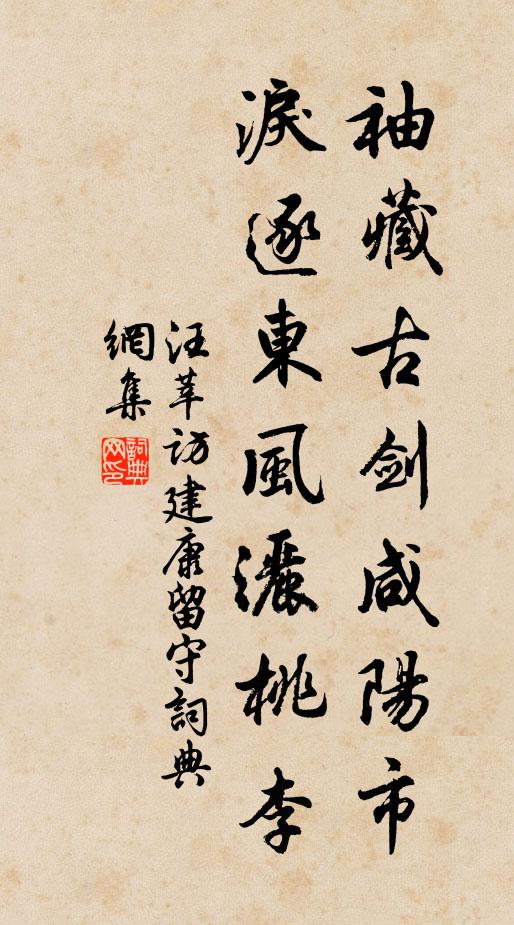 袖藏古剑咸陽市
淚逐東風灑桃李
汪莘访建康留守詞典
網集
詞典網印